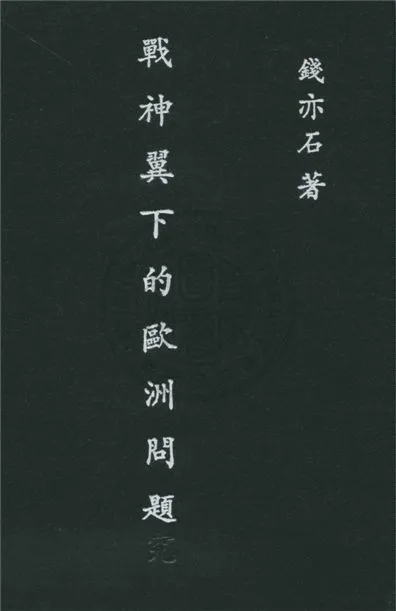 錢亦石著
戰神翼下的歐洲問題